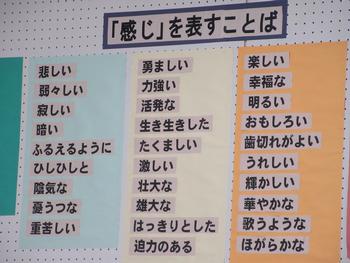 「感じ」を表すことば
悲しい
弱々しい
寂しい
暗い
ふるえるように
ひしひしと
陰気な
憂うつな
重苦しい
勇ましい
力強い
活発な
生き生きした
たくましい
激しい
壮大な
雄大な
はっきりとした
迫力のある
楽しい
幸福な
明るい
おもしろい
歯切れがよい
うれしい
輝かしい
華やかな
歌うような
ほがらかな